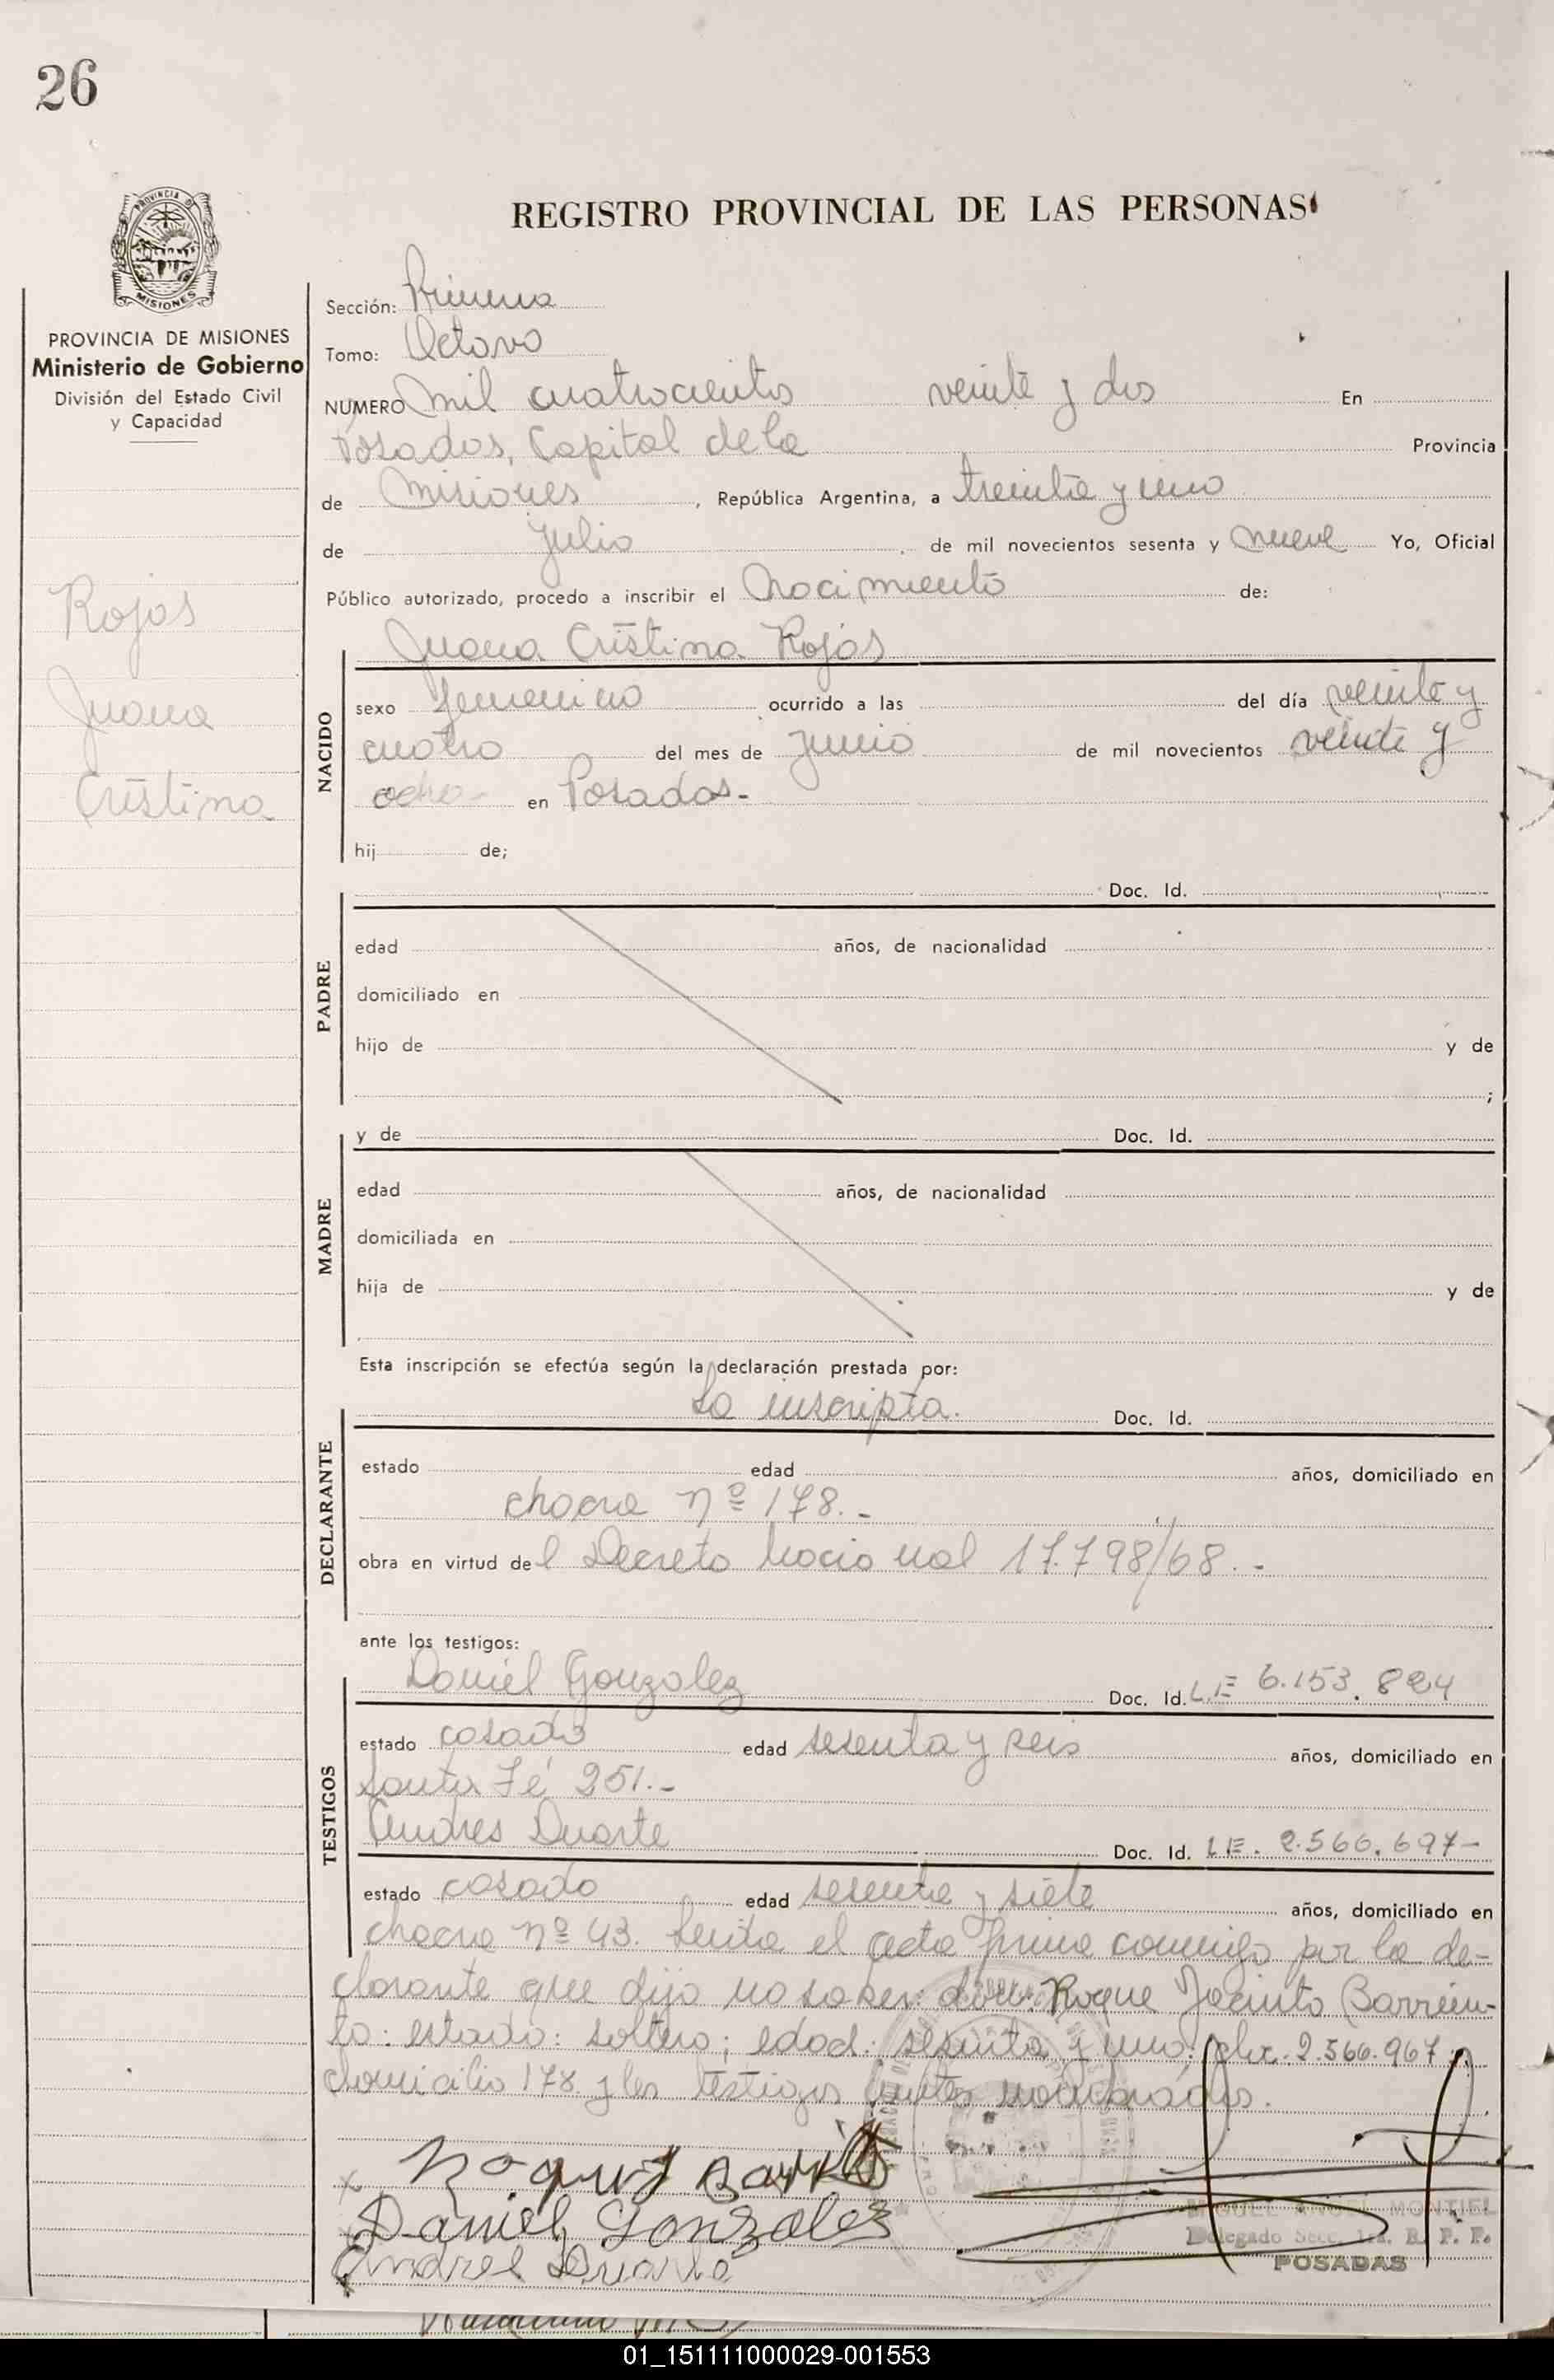 26
REGISTRO PROVINCIAL DE LAS PERSONAS
PROVINCIA DE MISIONES
Ministerio de Gobierno
División del Estado Civil
y Capacidad
Rojas
Juana
Cristina
Sección: Primera
Tomo: Octavo
NUMERO Mil cuatrocientos veinte y dos En
Posadas, Capital de la Provincia
de Misiones, República Argentina, a treinta y uno
de Julio de mil novecientos sesenta y nueve Yo, Oficial
Público autorizado, procedo a inscribir el Nacimiento de:
Juana Cristina Rojas
NACIDO
sexo femenino ocurrido a las del día veinte y
cuatro del mes de junio de mil novecientos veinte y
ocho- en Posadas.-
hij de;
PADRE
Doc. Id.
edad años, de nacionalidad
domiciliado en
hijo de y de
;
MADRE
y de Doc. Id.
edad años, de nacionalidad
domiciliada en
hija de y de
Esta inscripción se efectúa según la declaración prestada por:
DECLARANTE
La inscripta. Doc. Id.
estado edad años, domiciliado en
chacra nº 178.-
obra en virtud del Decreto Nacional 17.798/68.-
ante los testigos:
TESTIGOS
Daniel Gonzalez Doc. Id. L.E 6.153.824
estado casado edad sesenta y seis años, domiciliado en
Santa Fé 251.-
Andres Duarte Doc. Id. LE. 2.566.697-
estado casado edad sesenta y siete años, domiciliado en
chacra nº 43. Leida el acta firma conmigo por la de-
clarante que dijo no saber: don: Roque Jacinto Barrien-
to: estado: soltero; edad: sesenta y uno: 2.566.967
domicilio 178 y los testigos antes nombrados.
Daniel Gonzalez
Andres Duarte
MIGUEL ANGEL MONTIEL
Delegado Secc. 1ra. R. P. P.
POSADAS
01_151111000029-001553